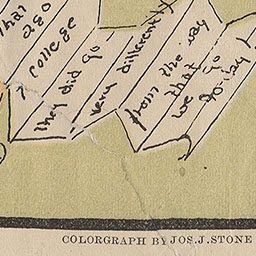 that
ago
college
they did go
very differently
from the way
we that go
to-day
COLORGRAPH BY JOS. J. STONE